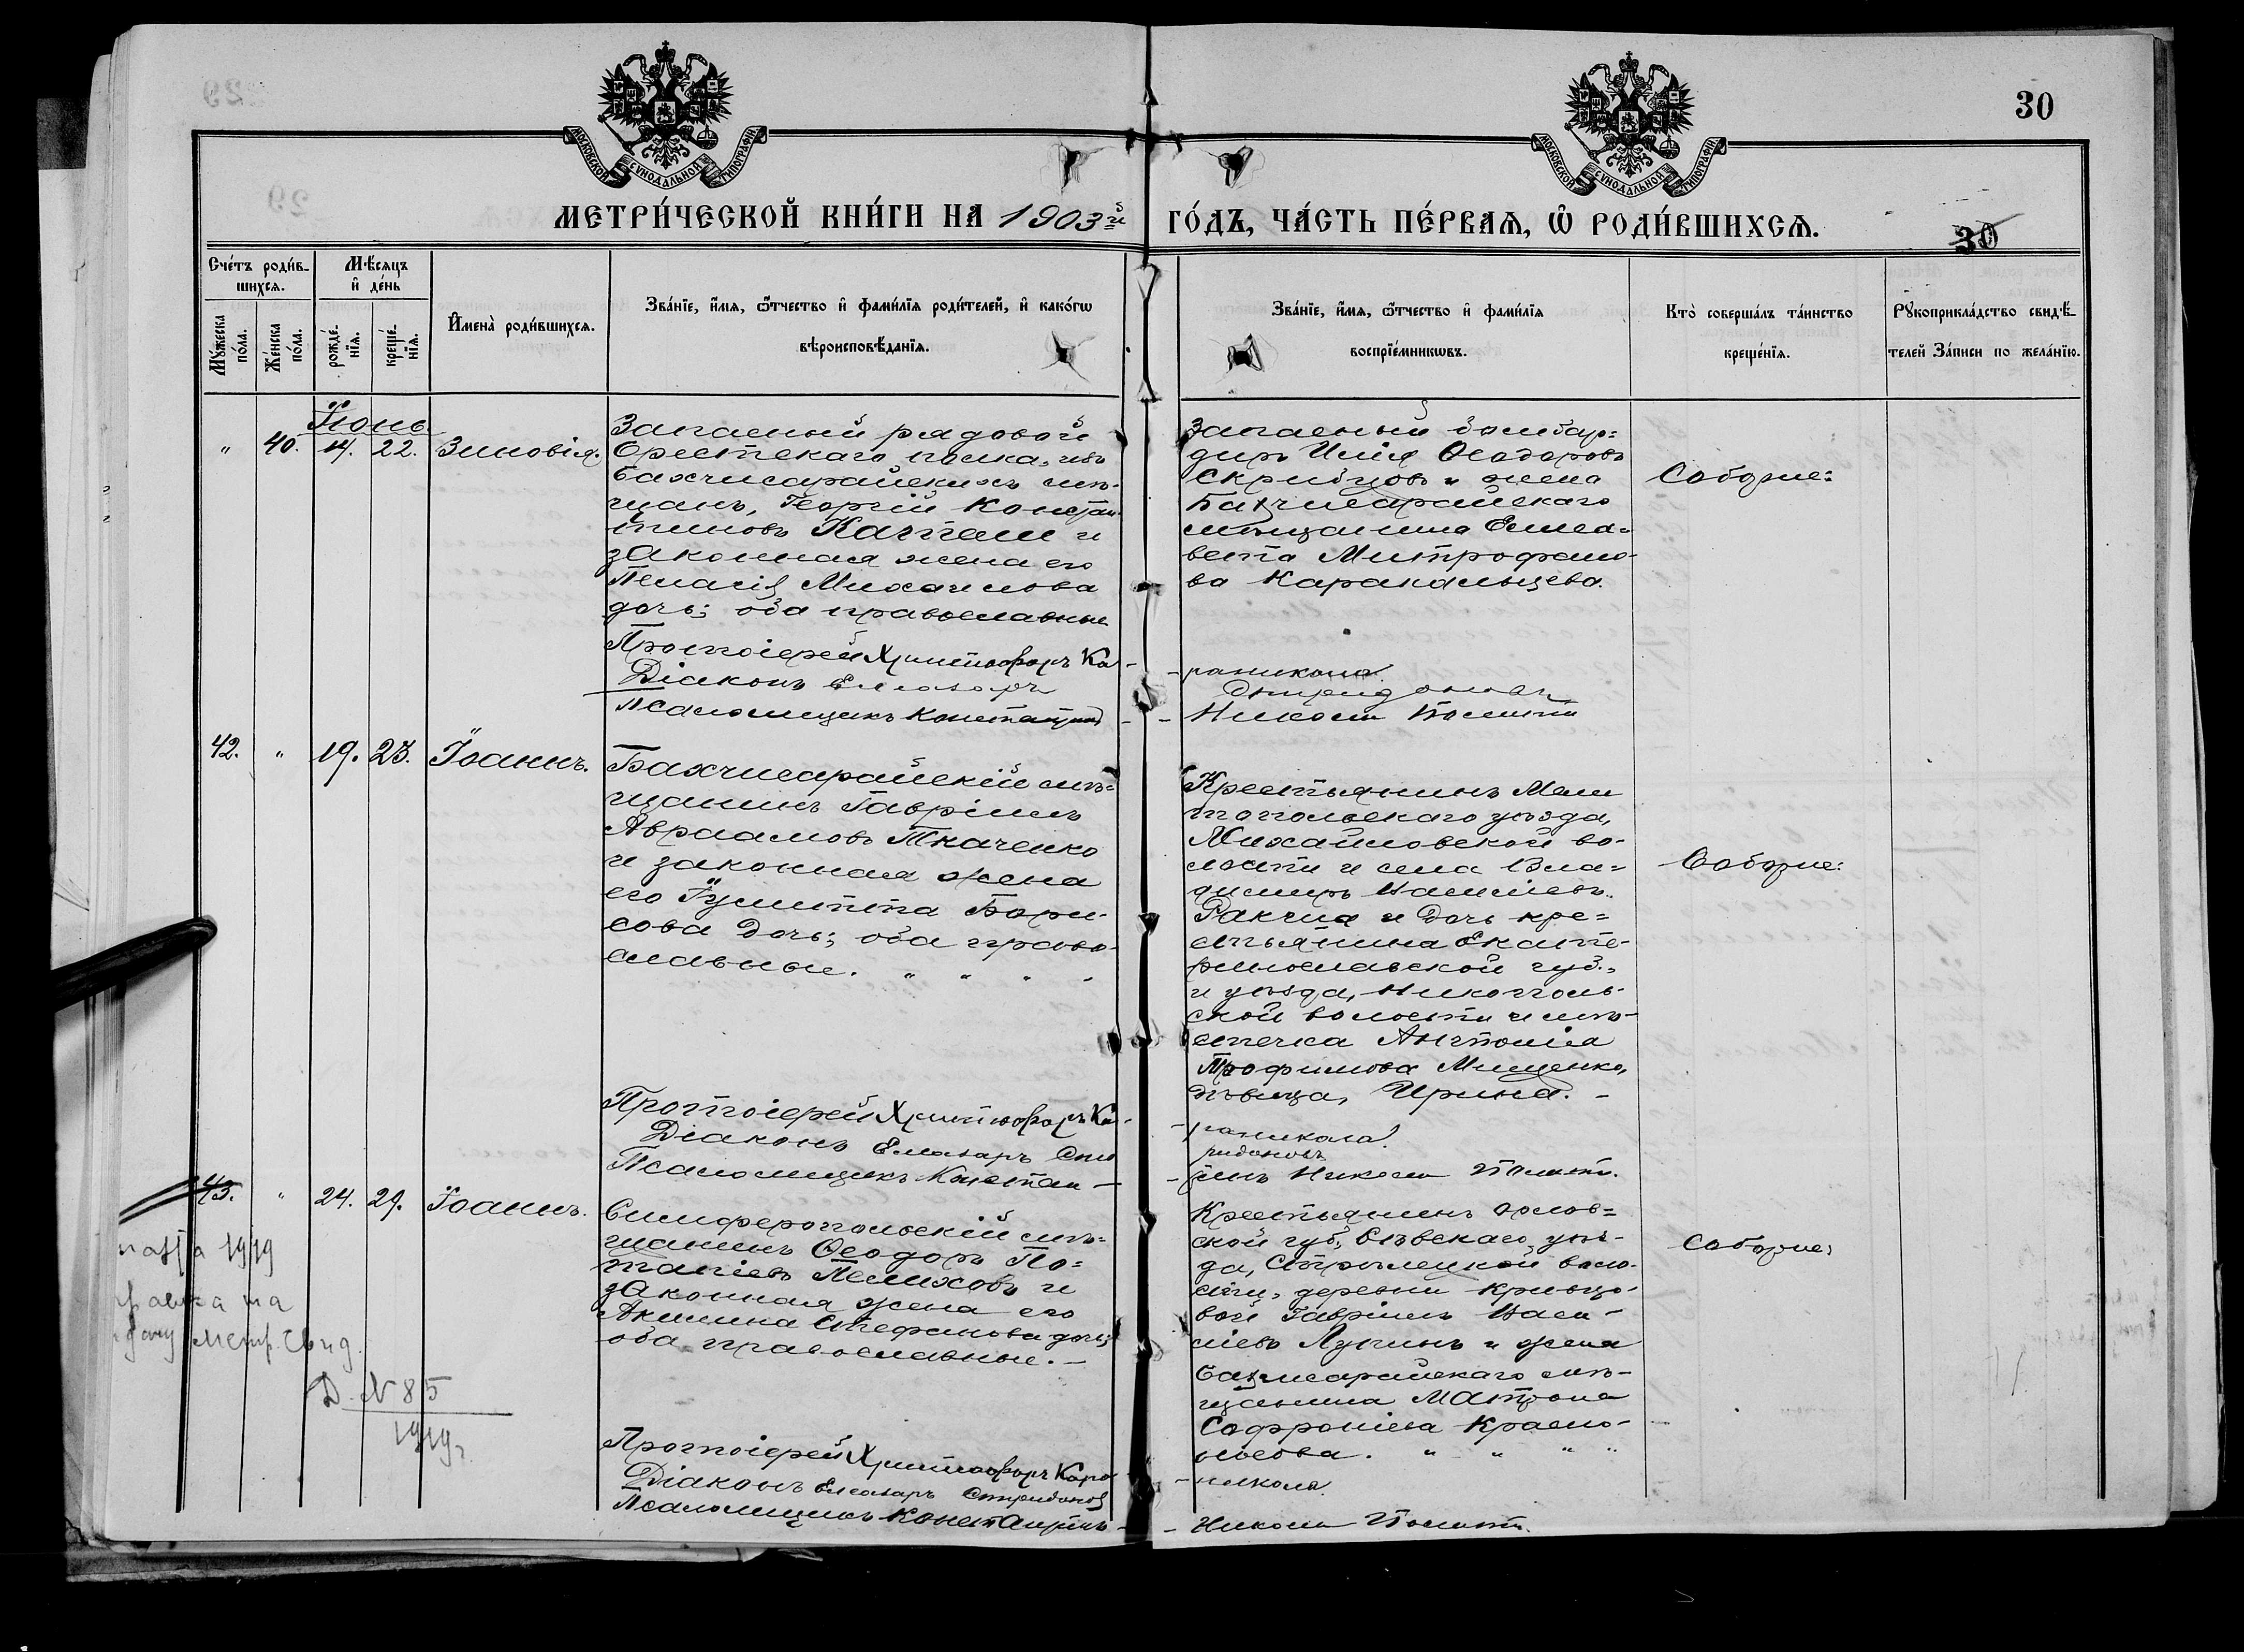 30
МОСКОВСКОЙ СУНОДАЛЬНОЙ ТИПОГРАФІИ
МОСКОВСКОЙ СУНОДАЛЬНОЙ ТИПОГРАФІИ
МЕТРИ́ЧЕСКОЙ КНИ́ГИ НА 1903й ГО́ДЪ, ЧА́СТЬ ПЕ́РВАЯ, Ѡ РОДИ́ВШИХСЯ.
30
Сче́тъ роди́в-
шихся.
Мꙋ́жеска по́ла.
Же́нска по́ла.
Мѣ́сяцъ
и де́нь
рожде́-
нїя.
креще́-
нїя.
Имена̀ роди́вшихся.
Зва́нїе, и́мя, ѻ́тчество и фами́лїя роди́телей, и како́гѡ
вѣроисповѣ́данїя.
Зва́нїе, и́мя, ѻ́тчество и фами́лїя
воспрїе́мникѡвъ.
Кто̀ соверша́лъ та́инство
креще́нїя.
Рꙋкоприкла́дство свидѣ́-
телей За́писи по жела́нїю.
Іюнь.
" 40. 14. 22. Зиновія.
Запасный рядовой
Брестскаго полка, изъ
Бахчисарайскихъ мѣ-
щанъ, Георгій Констан-
тиновъ и
законная жена его
Михайлова
дочь; оба православные
Протоіерей Христофоръ Ка-
Діаконъ Елеазаръ
Псаломщикъ Константинъ -
Запасный бомбар-
диръ Илія Ѳеодоровъ
Скрибцовъ и жена
Бахчисарайскаго
мѣщанина Елиса-
вета Митрофано-
ва Каракальцева.
- раникола.
Спиридоновъ
- Николи Полити
Соборне:
42. " 19. 23. Іоаннъ.
Бахчисарайскій мѣ-
щанинъ Гавріилъ
Авраамовъ Ткаченко
и законная жена
его Іулитта Бори-
сова дочь; оба право-
славные. " " " "
Протоіерей Христофоръ Ка-
Діаконъ Елеазаръ Спи
Псаломщикъ Констан-
Крестьянинъ Мели
топольскаго уѣзда,
Михайловской во-
лости и села Вла-
димиръ Василіевъ
Ракча и дочь кре-
стьянина Екате-
ринославской губ.,
и уѣзда, Никополь-
ской волости и мѣ-
стечка Антонія
Трофимова Мищенко,
дѣвица, Ирина. -
- раникола.
ридоновъ
- тинъ Николи Полити.
Соборне:
43. " 24. 29. Іоаннъ.
Симферопольскій мѣ-
щанинъ Ѳеодоръ По-
тапіевъ Лелиховъ и
законная жена его
Акилина Стефанова дочь;
оба православные. -
Протоіерей Христофоръ Кара-
Діаконъ Елеазаръ Спиридоновъ
Псаломщикъ Константинъ -
Крестьянинъ Орлов-
ской губ., Сѣвскаго уѣз-
да, Стрѣлецкой воло-
сти, деревни Кривцо-
вой Гавріилъ Васи-
ліевъ Лукинъ и жена
Бахчисарайскаго мѣ-
щанина Матрона
Софроніева Красно-
носова. " " " "
- никола.
- Николи Полити.
Соборне:
1919
на
метр. свид.
Д. № 85
1919 г.